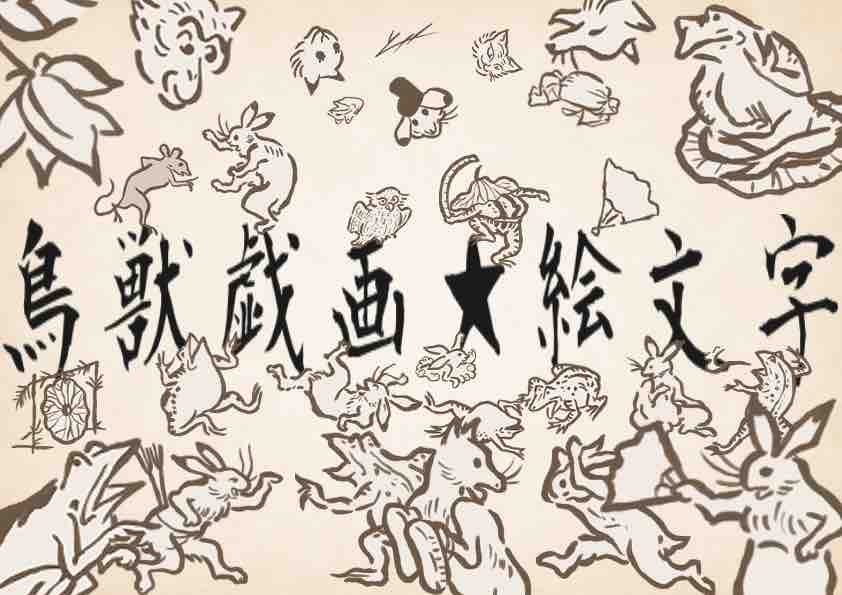 鳥獣戯画★絵文字